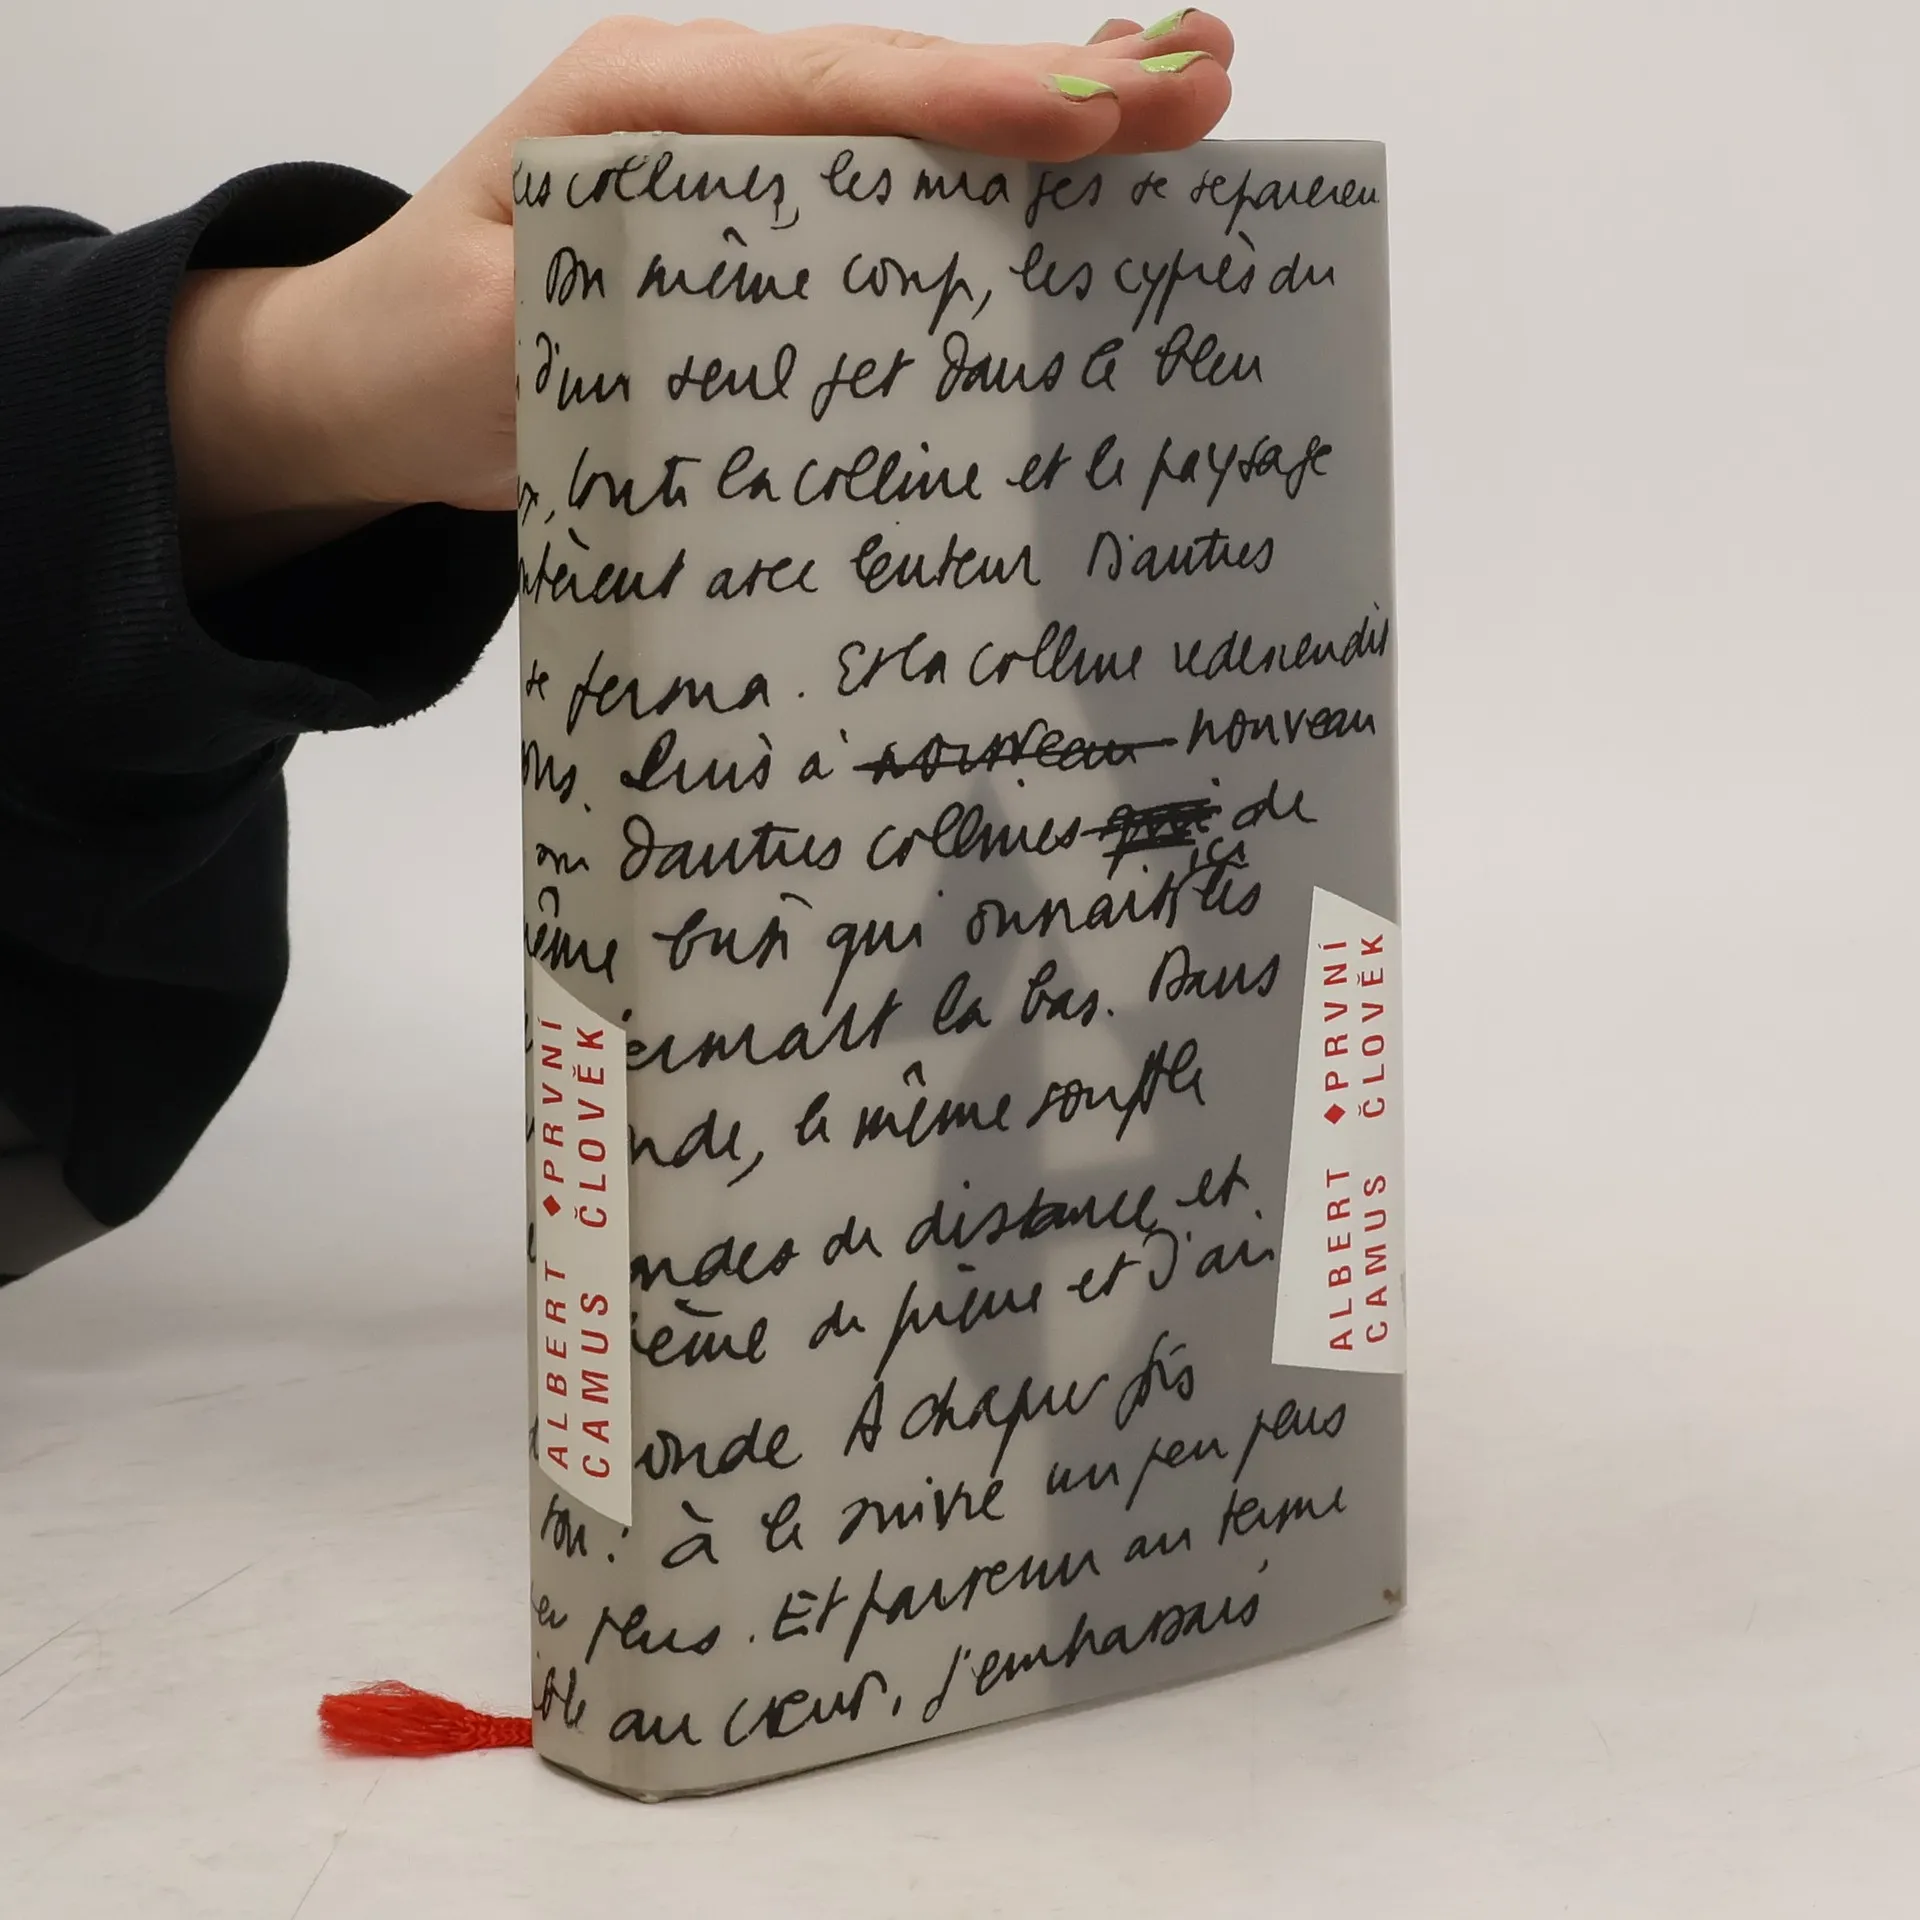 les collines, les nuages se séparèren
Du même coup, les cyprès du
d'un seul jet dans le bleu
toute la colline et le paysage
avec lenteur D'autres
se ferma. Et la colline redescendit
Puis à nouveau nouveau
ou d'autres collines qui de
ême qui ici les
là bas. Dans
nde, le même souffle
ondes de distance et
ème de pierre et d'air
onde A chaque fois
ton : à le suivre un peu plus
plus. Et parvenu au terme
ble au cœur, j'embrassais
ALBERT ◆PRVNÍ
CAMUS ČLOVĚK
ALBERT ◆PRVNÍ
CAMUS ČLOVĚK